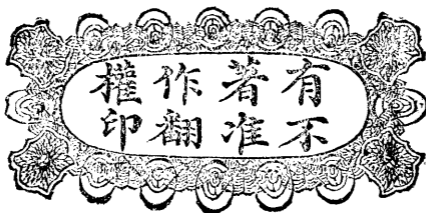 有不
著准
作翻
權印